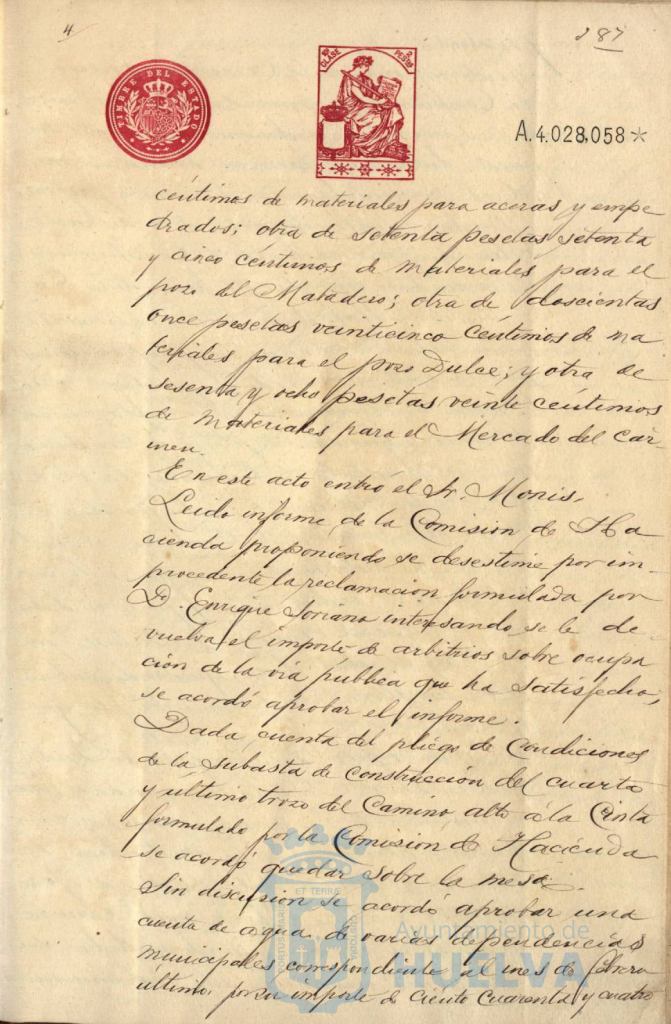 4
287
TIMBRE DEL ESTADO
CLASE
PESETAS
A.4.028,058*
céntimos de materiales para aceras y empe
drados; otra de setenta pesetas setenta
y cinco céntimos de materiales para el
pozo del Matadero; otra de doscientas
once pesetas veinticinco céntimos de ma
teriales para el pozo Dulce; y otra de
sesenta y ocho pesetas veinte céntimos
de materiales para el Mercado del Car
men.
En este acto entró el Sr Monis.
Leido informe de la Comision de Ha
cienda proponiendo se desestime por im-
procedente la reclamacion formulada por
D. Enrique Soriano interesando se le de
vuelva el importe de arbitrios sobre ocupa
cion de la via publica que ha satisfecho,
se acordó aprobar el informe.
Dada cuenta del pliego de Condiciones
de la subasta de construccion del cuarto
y último trozo del Camino alto á la Cinta
formulado por la Comision de Hacienda
se acordó quedar sobre la mesa.
Sin discusion se acordó aprobar una
cuenta de agua de varias dependencias
municipales correspondiente al mes de febrero
último por su importe de ciento cuarenta y cuatro
ET TERRAE
PORTUS MARIS
CUSTODIA
Ayuntamiento de
HUELVA